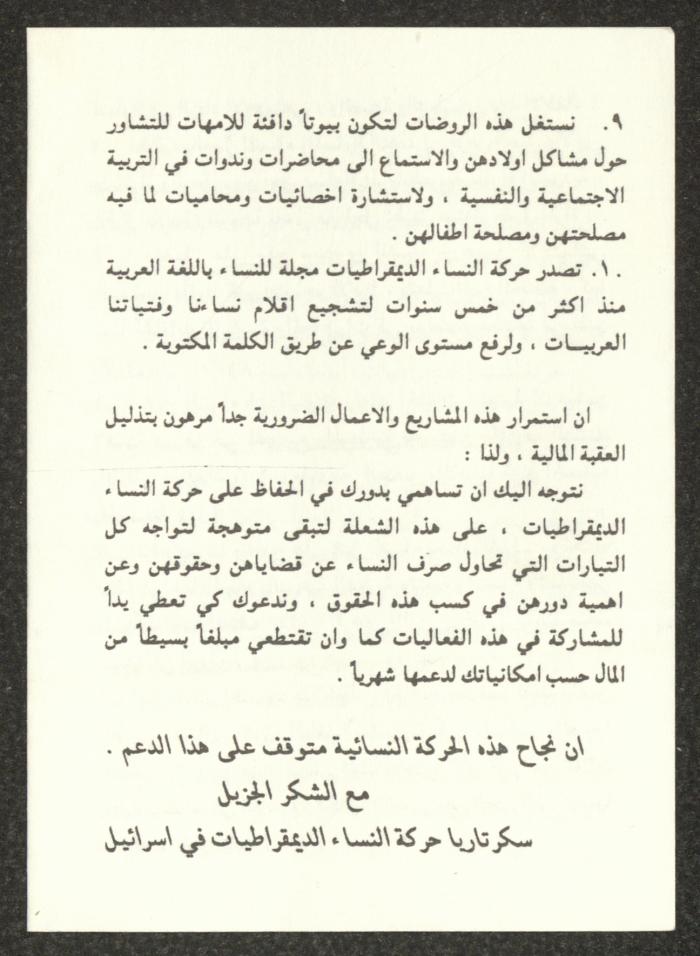 ٩. نستغل هذه الروضات لتكون بيوتاً دافئة للامهات للتشاور
حول مشاكل اولادهن والاستماع الى محاضرات وندوات في التربية
الاجتماعية والنفسية ، ولاستشارة اخصائيات ومحاميات لما فيه
مصلحتهن ومصلحة اطفالهن .
١٠. تصدر حركة النساء الديمقراطيات مجلة للنساء باللغة العربية
منذ اكثر من خمس سنوات لتشجيع اقلام نساءنا وفتياتنا
العربيات ، ولرفع مستوى الوعي عن طريق الكلمة المكتوبة .
ان استمرار هذه المشاريع والاعمال الضرورية جداً مرهون بتذليل
العقبة المالية ، ولذا :
نتوجه اليك ان تساهمي بدورك في الحفاظ على حركة النساء
الديمقراطيات ، على هذه الشعلة لتبقى متوهجة لتواجه كل
التيارات التي تحاول صرف النساء عن قضاياهن وحقوقهن وعن
اهمية دورهن في كسب هذه الحقوق ، وندعوك كي تعطي يداً
للمشاركة في هذه الفعاليات كما وان تقتطعي مبلغاً بسيطاً من
المال حسب امكانياتك لدعمها شهرياً .
ان نجاح هذه الحركة النسائية متوقف على هذا الدعم .
مع الشكر الجزيل
سكرتاريا حركة النساء الديمقراطيات في اسرائيل